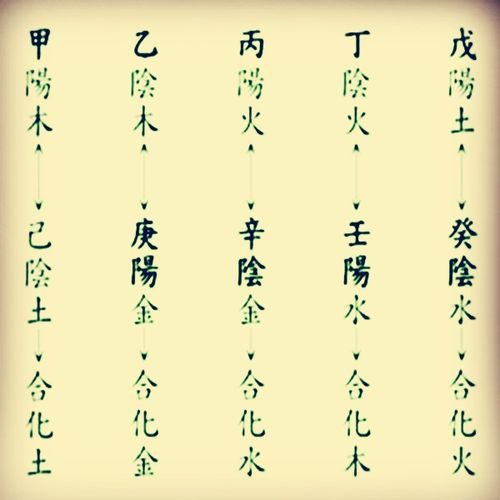 甲陽木 己陰土 合化土
乙陰木 庚陽金 合化金
丙陽火 辛陰金 合化水
丁陰火 壬陽水 合化木
戊陽土 癸陰水 合化火